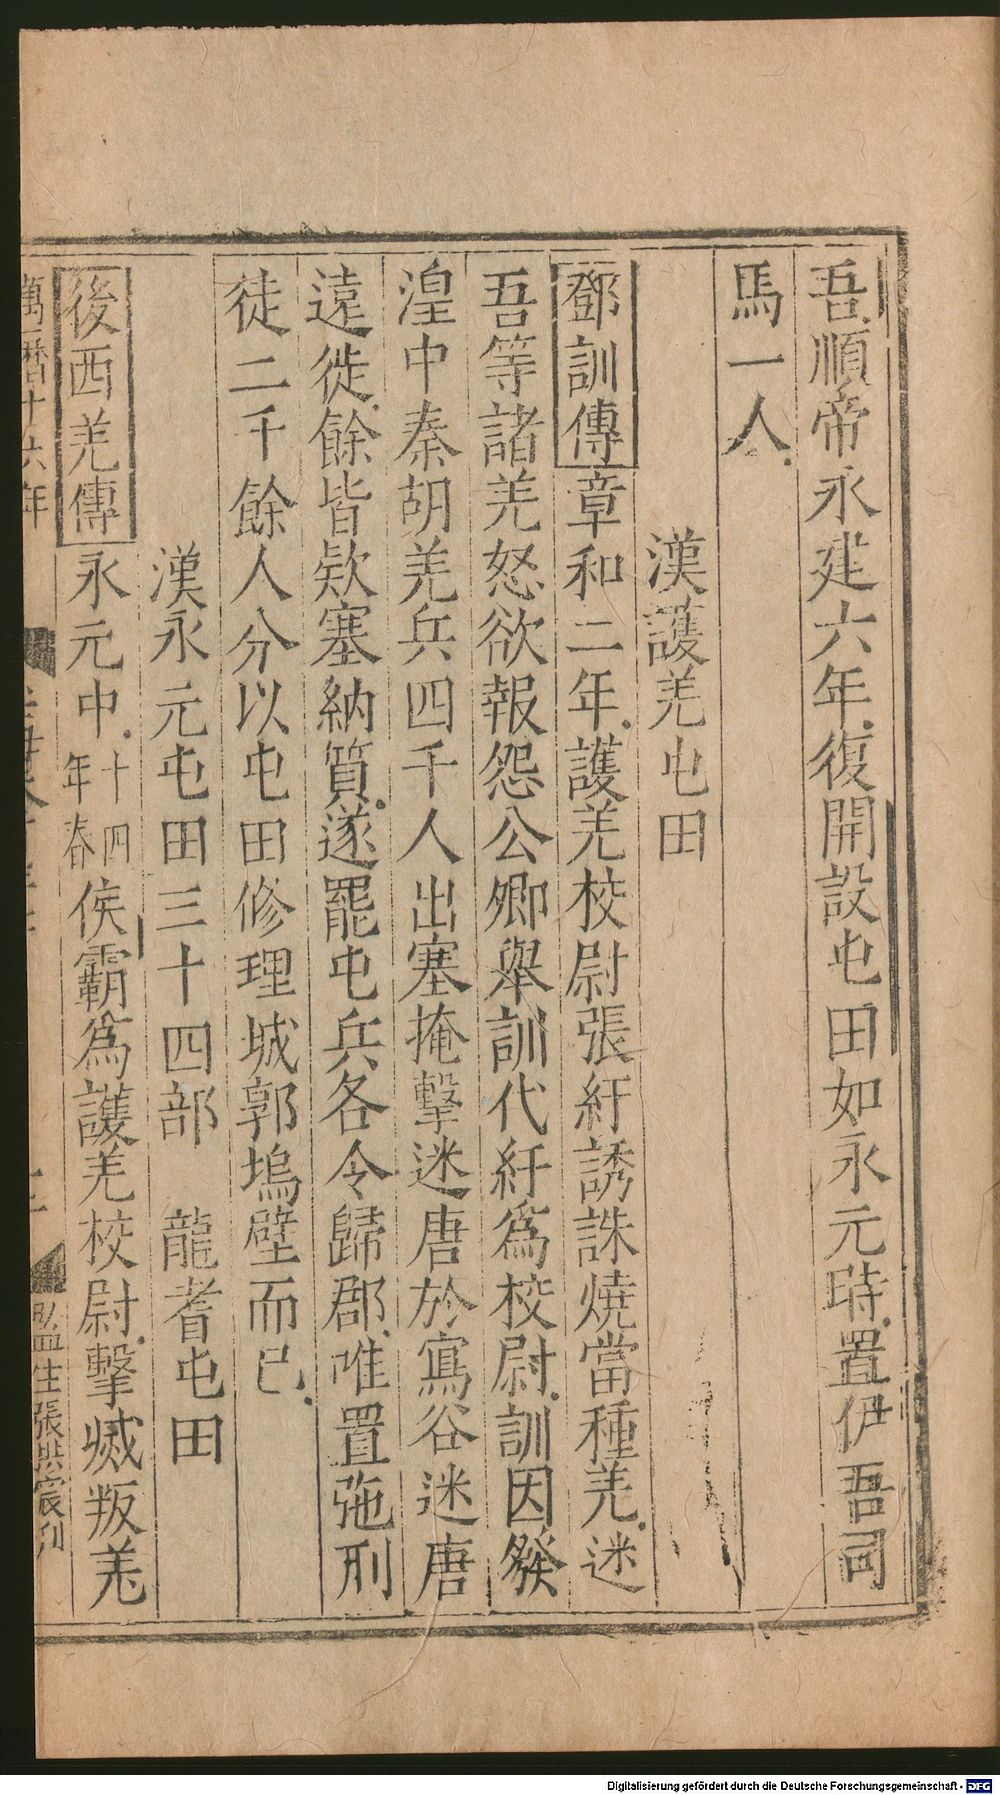 吾順帝永建六年復開設屯田如永元時置伊吾司
馬一人
漢護羌屯田
鄧訓傳章和二年護羌校尉張紆誘誅燒當種羌迷
吾等諸羌怒欲報怨公卿舉訓代紆爲校尉訓因發
湟中秦胡羌兵四千人出塞掩擊迷唐於寫谷迷唐
遠徙餘皆欵塞納質遂罷屯兵各令歸郡唯置弛刑
徒二千餘人分以屯田修理城郭塢壁而已
漢永元屯田三十四部 龍耆屯田
後西羌傳永元中十四年春侯霸爲護羌校尉擊滅叛羌
萬曆十六年
監生張洪宸刊
Digitalisierung gefördert durch die Deutsche Forschungsgemeinschaft - DFG